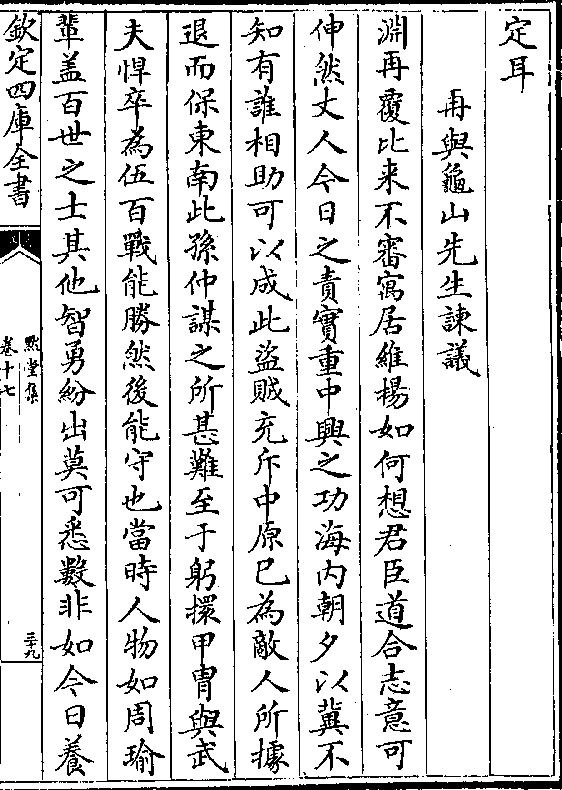 定耳
再與龜山先生諫議
淵再覆比来不審寓居維楊如何想君臣道合志意可
伸然丈人今日之責實重中興之功海内朝夕以冀不
知有誰相助可以成此盗賊充斥中原已為敵人所據
退而保東南此孫仲謀之所甚難至于躬擐甲胄與武
夫悍卒為伍百戰能勝然後能守也當時人物如周瑜
輩盖百世之士其他智勇紛出莫可悉數非如今日養
欽定四庫全書
默堂集
卷十七
三十九